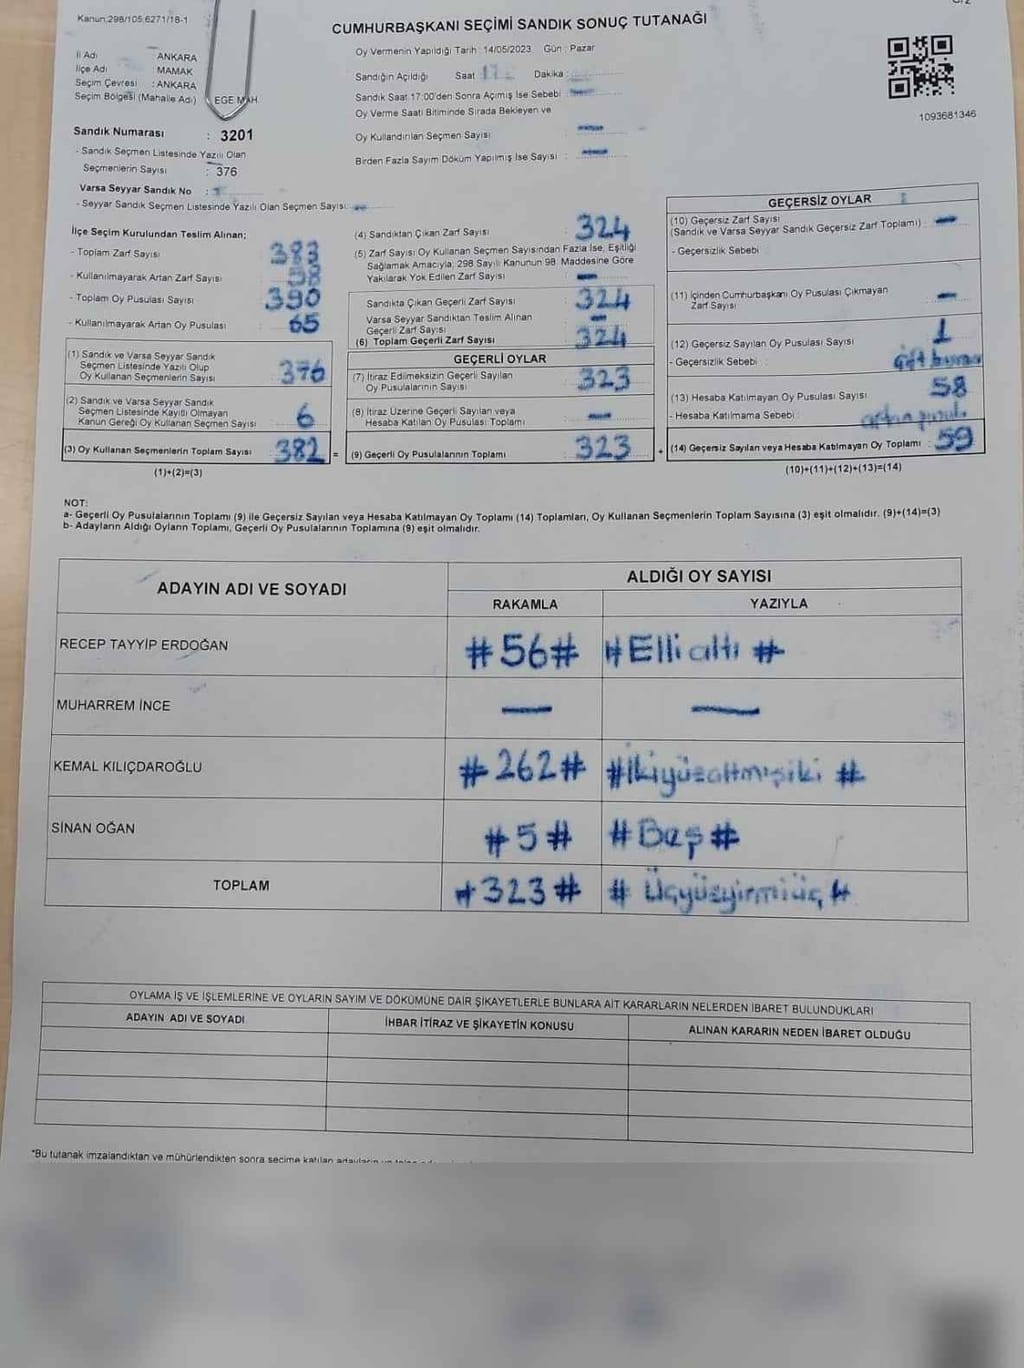 Kanun,298/105,6271/18-1
CUMHURBAŞKANI SEÇİMİ SANDIK SONUÇ TUTANAĞI
Oy Vermenin Yapıldığı Tarih : 14/05/2023 Gün : Pazar
İl Adı : ANKARA
İlçe Adı : MAMAK
Seçim Çevresi : ANKARA
Seçim Bölgesi (Mahalle Adı) : EGE MAH.
Sandık Numarası : 3201
- Sandık Seçmen Listesinde Yazılı Olan
Seçmenlerin Sayısı : 376
Varsa Seyyar Sandık No :
- Seyyar Sandık Seçmen Listesinde Yazılı Olan Seçmen Sayısı:
Sandığın Açıldığı Saat Dakika :
Sandık Saat 17:00'den Sonra Açımış İse Sebebi :
Oy Verme Saati Bitiminde Sırada Bekleyen ve
Oy Kullandırılan Seçmen Sayısı : —
Birden Fazla Sayım Döküm Yapılmış İse Sayısı : —
1093681346
İlçe Seçim Kurulundan Teslim Alınan;
- Toplam Zarf Sayısı : 383
- Kullanılmayarak Artan Zarf Sayısı : 58
- Toplam Oy Pusulası Sayısı : 390
- Kullanılmayarak Artan Oy Pusulası : 65
(1) Sandık ve Varsa Seyyar Sandık
Seçmen Listesinde Yazılı Olup
Oy Kullanan Seçmenlerin Sayısı : 376
(2) Sandık ve Varsa Seyyar Sandık
Seçmen Listesinde Kayıtlı Olmayan
Kanun Gereği Oy Kullanan Seçmen Sayısı : 6
(3) Oy Kullanan Seçmenlerin Toplam Sayısı : 382 =
(1)+(2)=(3)
(4) Sandıktan Çıkan Zarf Sayısı : 324
(5) Zarf Sayısı Oy Kullanan Seçmen Sayısından Fazla İse, Eşitliği
Sağlamak Amacıyla, 298 Sayılı Kanunun 98. Maddesine Göre
Yakılarak Yok Edilen Zarf Sayısı : —
Sandıkta Çıkan Geçerli Zarf Sayısı : 324
Varsa Seyyar Sandıktan Teslim Alınan
Geçerli Zarf Sayısı : —
(6) Toplam Geçerli Zarf Sayısı : 324
GEÇERLİ OYLAR
(7) İtiraz Edimeksizin Geçerli Sayılan
Oy Pusulalarının Sayısı : 323
(8) İtiraz Üzerine Geçerli Sayılan veya
Hesaba Katılan Oy Pusulaları Toplamı : —
(9) Geçerli Oy Pusulalarının Toplamı : 323 +
GEÇERSİZ OYLAR
(10) Geçersiz Zarf Sayısı
(Sandık ve Varsa Seyyar Sandık Geçersiz Zarf Toplamı) : —
- Geçersizlik Sebebi :
(11) İçinden Cumhurbaşkanı Oy Pusulası Çıkmayan
Zarf Sayısı : —
(12) Geçersiz Sayılan Oy Pusulası Sayısı : 1
- Geçersizlik Sebebi :
(13) Hesaba Katılmayan Oy Pusulası Sayısı : 58
- Hesaba Katılmama Sebebi :
(14) Geçersiz Sayılan veya Hesaba Katılmayan Oy Toplamı : 59
(10)+(11)+(12)+(13)=(14)
NOT:
a- Geçerli Oy Pusulalarının Toplamı (9) ile Geçersiz Sayılan veya Hesaba Katılmayan Oy Toplamı (14) Toplamları, Oy Kullanan Seçmenlerin Toplam Sayısına (3) eşit olmalıdır. (9)+(14)=(3)
b- Adayların Aldığı Oyların Toplamı, Geçerli Oy Pusulalarının Toplamına (9) eşit olmalıdır.
ADAYIN ADI VE SOYADI
ALDIĞI OY SAYISI
RAKAMLA YAZIYLA
RECEP TAYYİP ERDOĞAN #56# #Elli altı #
MUHARREM İNCE — —
KEMAL KILIÇDAROĞLU #262# #İkiyüzaltmışiki #
SİNAN OĞAN #5# #Beş#
TOPLAM #323# # Üçyüzyirmiüç #
OYLAMA İŞ VE İŞLEMLERİNE VE OYLARIN SAYIM VE DÖKÜMÜNE DAİR ŞİKAYETLERLE BUNLARA AİT KARARLARIN NELERDEN İBARET BULUNDUKLARI
ADAYIN ADI VE SOYADI İHBAR İTİRAZ VE ŞİKAYETİN KONUSU ALINAN KARARIN NEDEN İBARET OLDUĞU
*Bu tutanak imzalandıktan ve mühürlendikten sonra seçime katılan